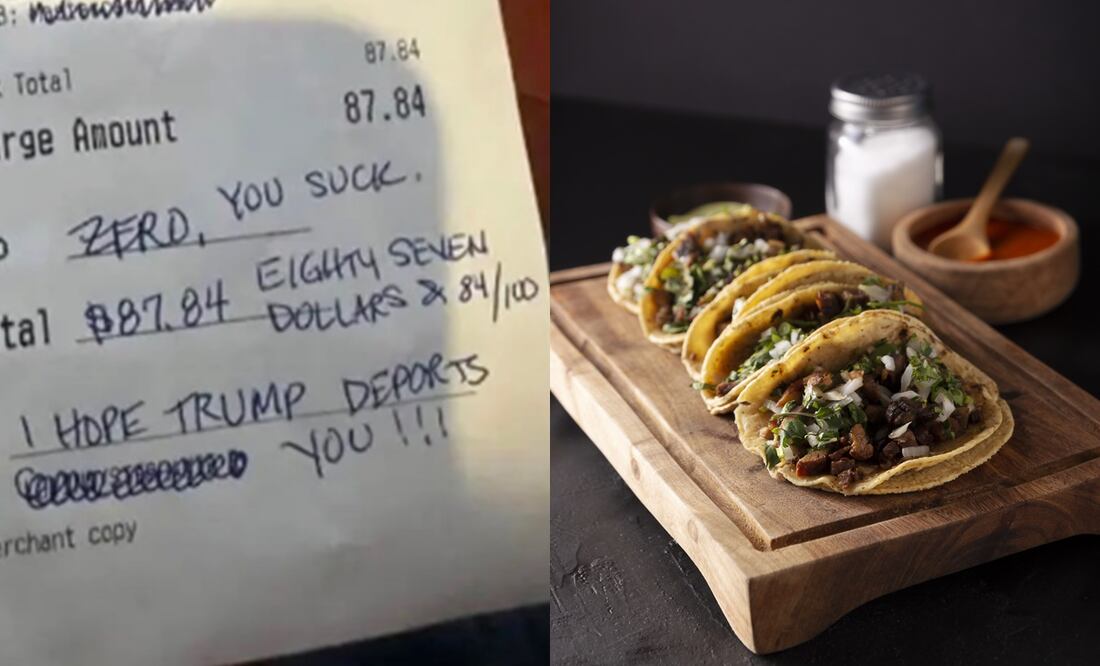 87.84
Total
87.84
rge Amount
ZERO, YOU SUCK.
tal $87.84 EIGHTY SEVEN
DOLLARS & 84/100
I HOPE TRUMP DEPORTS
YOU!!!
erchant copy